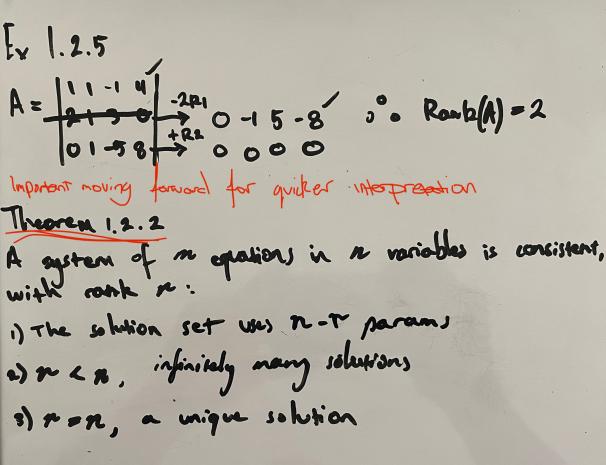 Ex 1.2.5
A = | 1 1 -1 4 | ✓
| 2 1 3 0 | -2R1 → 0 -1 5 -8 ✓ ∴ Rank(A) = 2
| 0 1 -5 8 | +R2 → 0 0 0 0
Important moving forward for quicker interpretation
Theorem 1.2.2
A system of m equations in n variables is consistent,
with rank r:
1) The solution set uses n-r params
2) r < n, infinitely many solutions
3) r = n, a unique solution